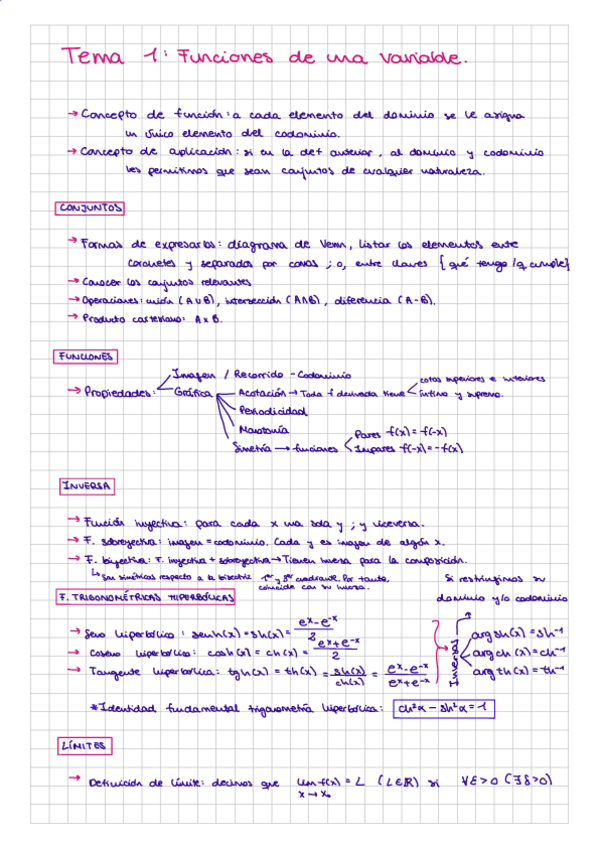 Tema 1: Funciones de una variable.
→ Concepto de función: a cada elemento del dominio se le asigna
un único elemento del codominio.
→ Concepto de aplicación: si en la def anterior, al dominio y codominio
les permitimos que sean conjuntos de cualquier naturaleza.
CONJUNTOS
→ Formas de expresarlos: diagrama de Venn, listar los elementos ente
corchetes y separados por comas; o, entre llaves { qué tengo /q cumple}
→ Conocer los conjuntos relevantes
→ Operaciones: unión (A∪B), intersección (A∩B), diferencia (A-B).
→ Producto cartesiano: A×B.
FUNCIONES
→ Propiedades:
Imagen / Recorrido - Codominio
Gráfica
Acotación → Toda f
tiene
cotas superiores e inferiores
ínfimo y supremo.
Periodicidad
Monotonía
Simetría → funciones
Pares f(x) = f(-x)
Impares f(-x) = -f(x)
INVERSA
→ Función inyectiva: para cada x una sola y ; y viceversa.
→ F. sobreyectiva: imagen = codominio. Cada y es imagen de algún x.
→ F. biyectiva: F. inyectiva + sobreyectiva → Tienen inversa para la composición.
↳ Son simétricas respecto a la bisectriz 1er y 3er cuadrante. Por tanto,
coincide con su inversa.
Si restringimos su
dominio y/o codominio
F. TRIGONOMÉTRICAS HIPERBÓLICAS
→ Seno hiperbólico: senh(x) = sh(x) = (e^x - e^-x)/2
→ Coseno hiperbólico: cosh(x) = ch(x) = (e^x + e^-x)/2
→ Tangente hiperbólica: tgh(x) = th(x) = sh(x)/ch(x) = (e^x - e^-x)/(e^x + e^-x)
Inversas
arg sh(x) = sh⁻¹
arg ch(x) = ch⁻¹
arg th(x) = th⁻¹
*Identidad fundamental trigonometría hiperbólica: ch²α - sh²α = 1
LÍMITES
→ Definición de límite: decimos que lim f(x) = L (L∈ℝ) si ∀ε>0 (∃δ>0)
x→x₀